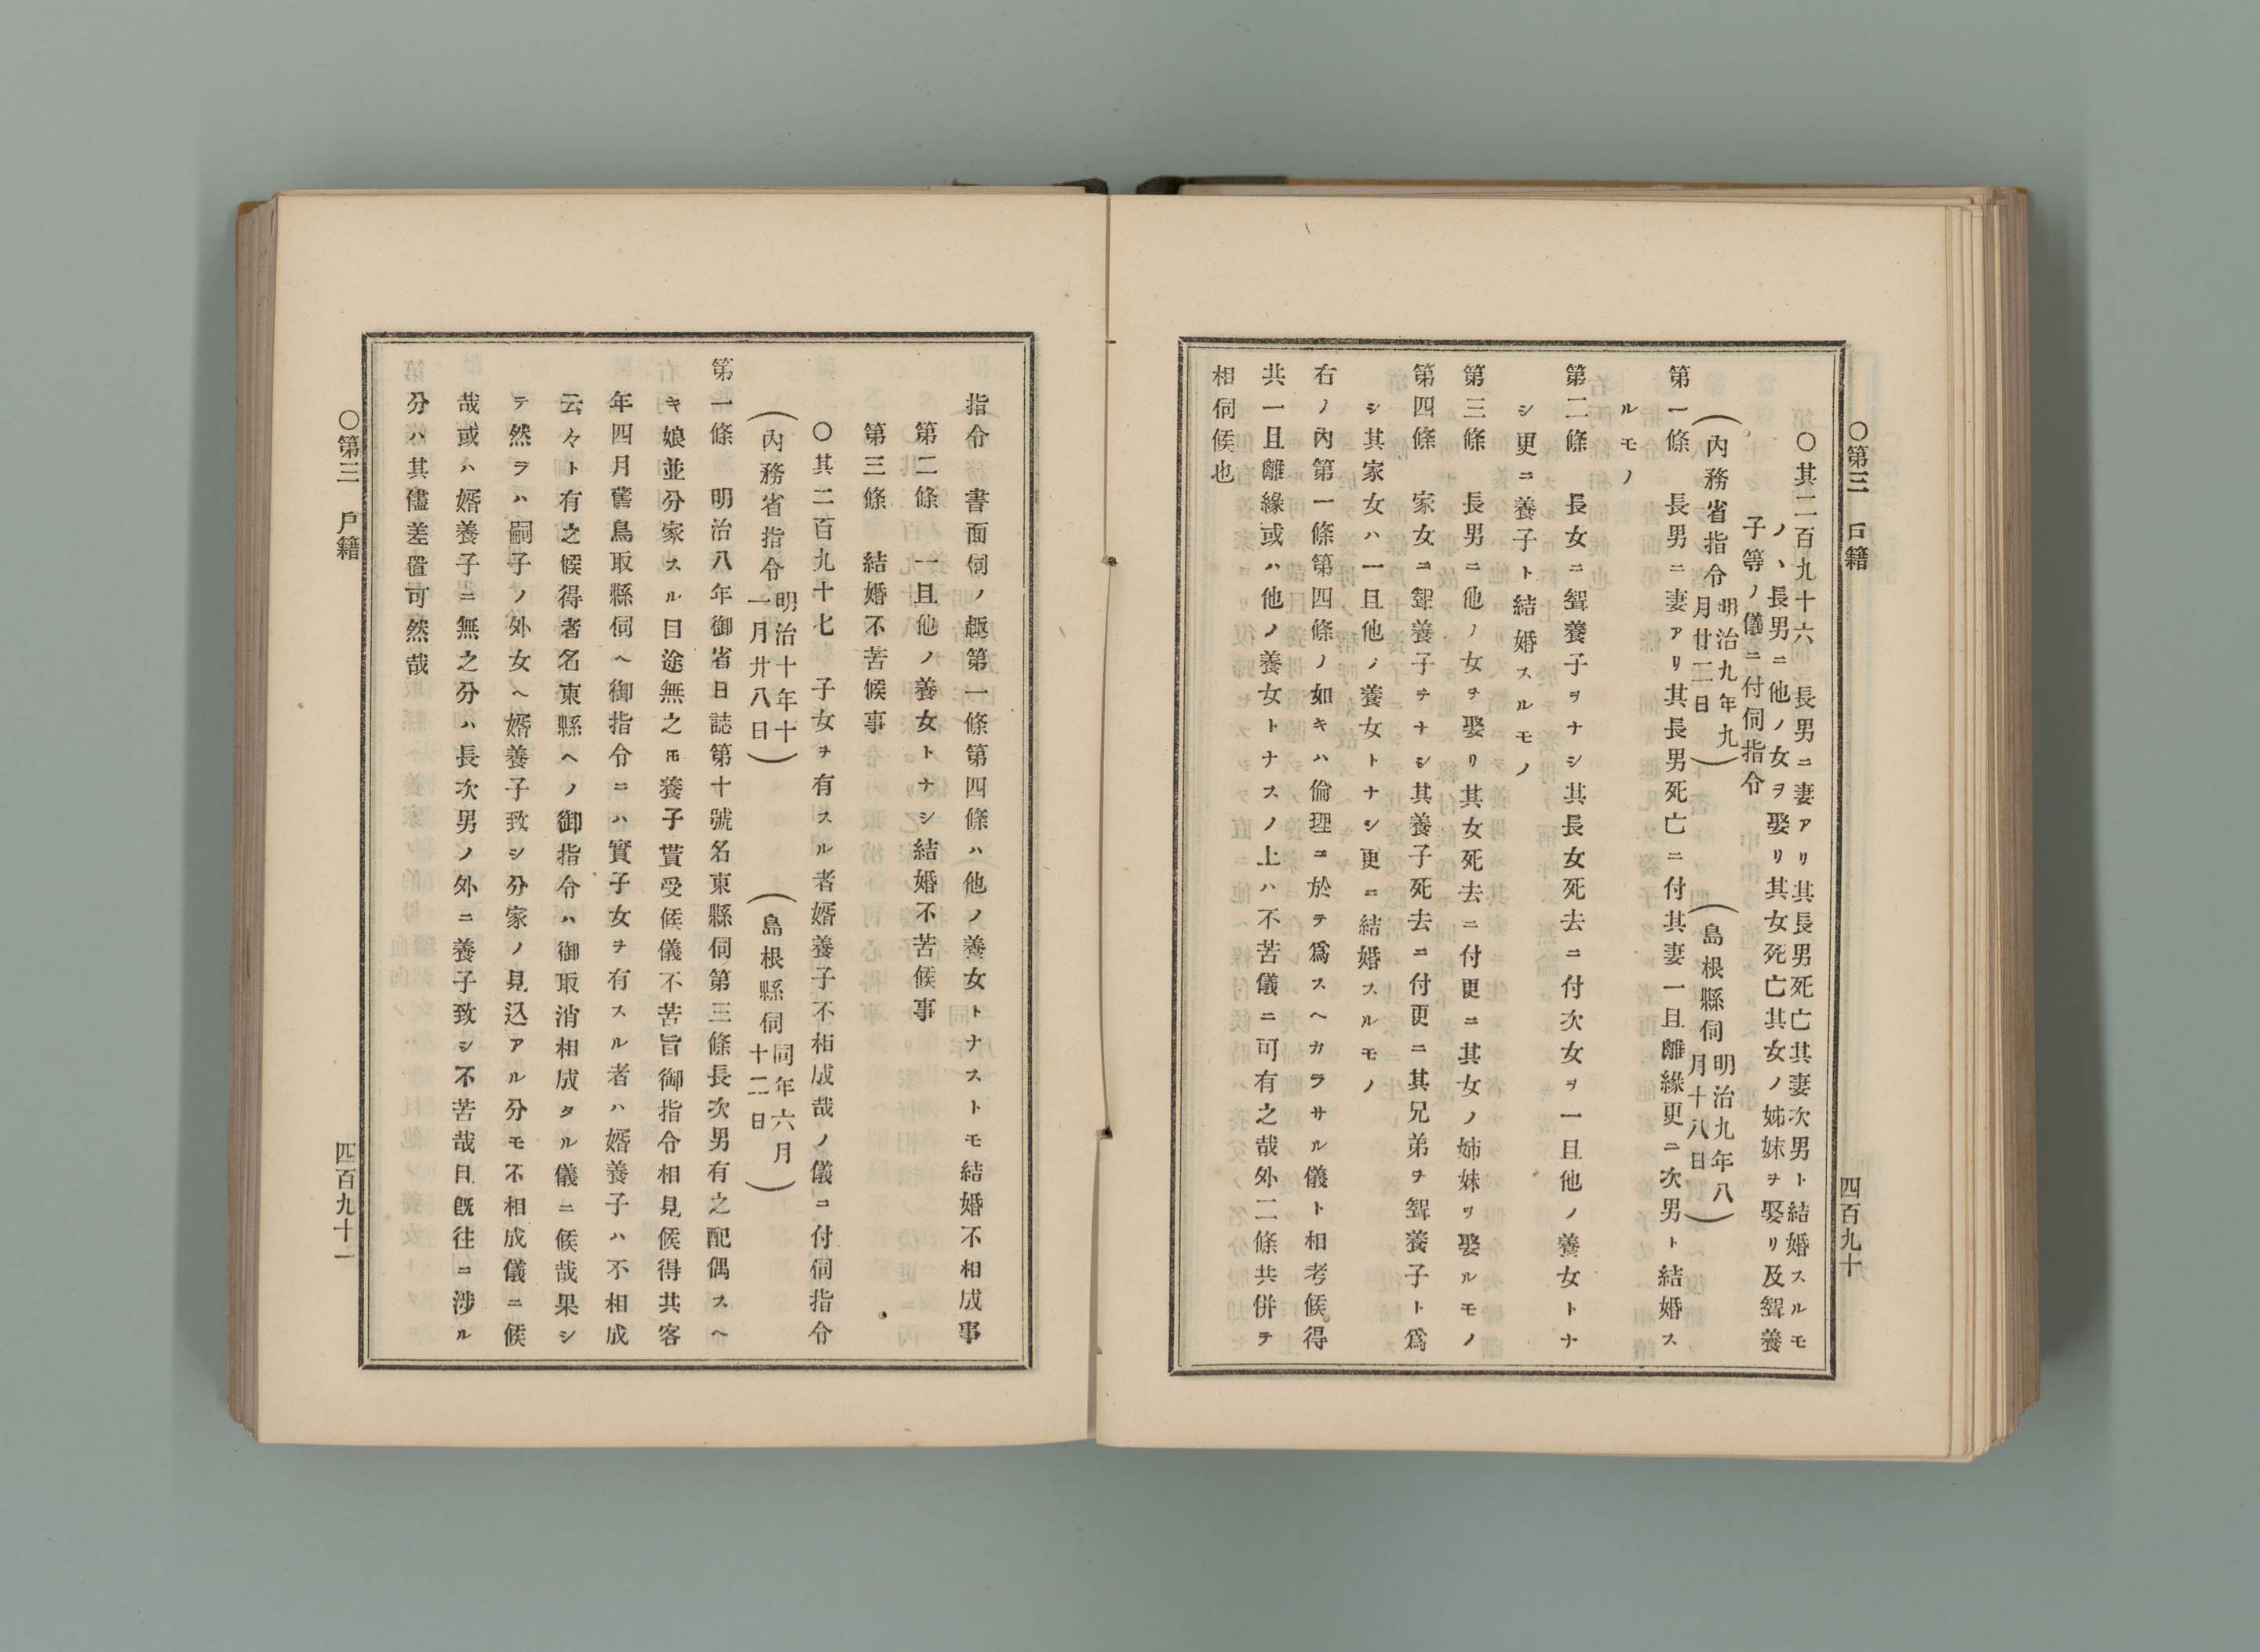 ○第三　戸籍　四百九十
○其二百九十六　長男ニ妻アリ其長男死亡其妻次男ト結婚スルモ
ノヽ長男ニ他ノ女ヲ娶リ其女死亡其女ノ姉妹ヲ娶リ及聟養
子等ノ儀ニ付伺指令
(内務省指令　明治九年九月廿二日)　(島根縣伺　明治九年八月十八日)
第一條　長男ニ妻アリ其長男死亡ニ付其妻一旦離緣更ニ次男ト結婚ス
ルモノ
第二條　長女ニ聟養子ヲナシ其長女死去ニ付次女ヲ一旦他ノ養女トナ
シ更ニ養子ト結婚スルモノ
第三條　長男ニ他ノ女ヲ娶リ其女死去ニ付更ニ其女ノ姉妹ヲ娶ルモノ
第四條　家女ニ聟養子ヲナシ其養子死去ニ付更ニ其兄弟ヲ聟養子ト爲
シ其家女ハ一旦他ノ養女トナシ更ニ結婚スルモノ
右ノ內第一條第四條ノ如キハ倫理ニ於テ爲スヘカラサル儀ト相考候得
共一旦離緣或ハ他ノ養女トナスノ上ハ不苦儀ニ可有之哉外二條共併テ
相伺候也
指令　書面伺ノ趣第一條第四條ハ他ノ養女トナストモ結婚不相成事
第二條　一旦他ノ養女トナシ結婚不苦候事
第三條　結婚不苦候事
○其二百九十七　子女ヲ有スル者婿養子不相成哉ノ儀ニ付伺指令
(內務省指令　明治十年十一月廿八日)　(島根縣伺　同年六月十二日)
第一條　明治八年御省日誌第十號名東縣伺第三條長次男有之配偶スヘ
キ娘並分家スル目途無之モ養子貰受候儀不苦旨御指令相見候得共客
年四月舊鳥取縣伺ヘ御指令ニハ實子女ヲ有スル者ハ婿養子ハ不相成
云々ト有之候得者名東縣ヘノ御指令ハ御取消相成タル儀ニ候哉果シ
テ然ラハ嗣子ノ外女ヘ婿養子致シ分家ノ見込アル分モ不相成儀ニ候
哉或ハ婿養子ニ無之分ハ長次男ノ外ニ養子致シ不苦哉且旣往ニ涉ル
分ハ其儘差置可然哉
○第三　戸籍　四百九十一